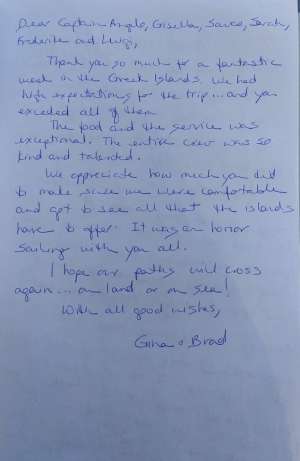 Dear Captain Angelo, Gisella, Sauco, Sarah,
Frederike and Luigi,
Thank you so much for a fantastic
week in the Greek Islands. We had
high expectations for the trip... and you
exceeded all of them.
The food and the service was
exceptional. The entire crew was so
kind and talented.
We appreciate how much you did
to make sure we were comfortable
and got to see all that the islands
have to offer. It was an honor
sailing with you all.
I hope our paths will cross
again... on land or on sea!
With all good wishes,
Gina & Brad